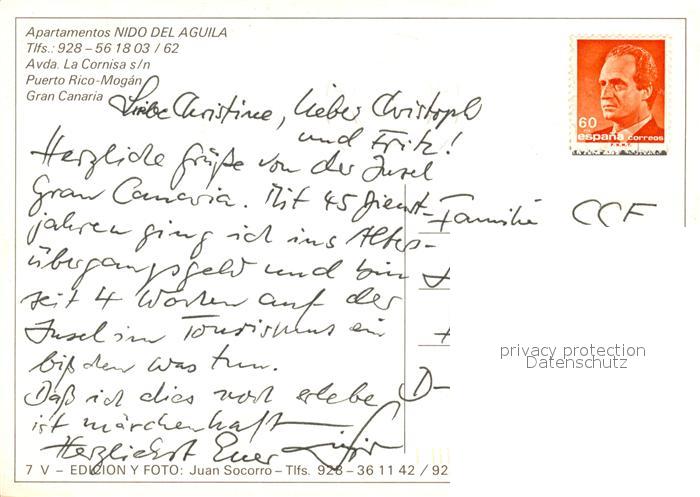 Apartamentos NIDO DEL AGUILA
Tlfs.: 928 – 56 18 03 / 62
Avda. La Cornisa s/n
Puerto Rico-Mogán
Gran Canaria
Liebe Christine, lieber Christoph
und Fritz!
Herzliche Grüße von der Insel
Gran Canaria. Mit 45 Dienst-
jahren ging ich ins Alters-
übergangsgeld und bin
seit 4 Wochen auf der
Insel im Tourismus ein
bißchen was tun.
Daß ich dies noch erlebe
ist märchenhaft
Herzlichst Euer
60
españa correos
Familie CCF
D-
privacy protection
Datenschutz
7 V – EDICION Y FOTO: Juan Socorro – Tlfs. 928 – 36 11 42 / 92